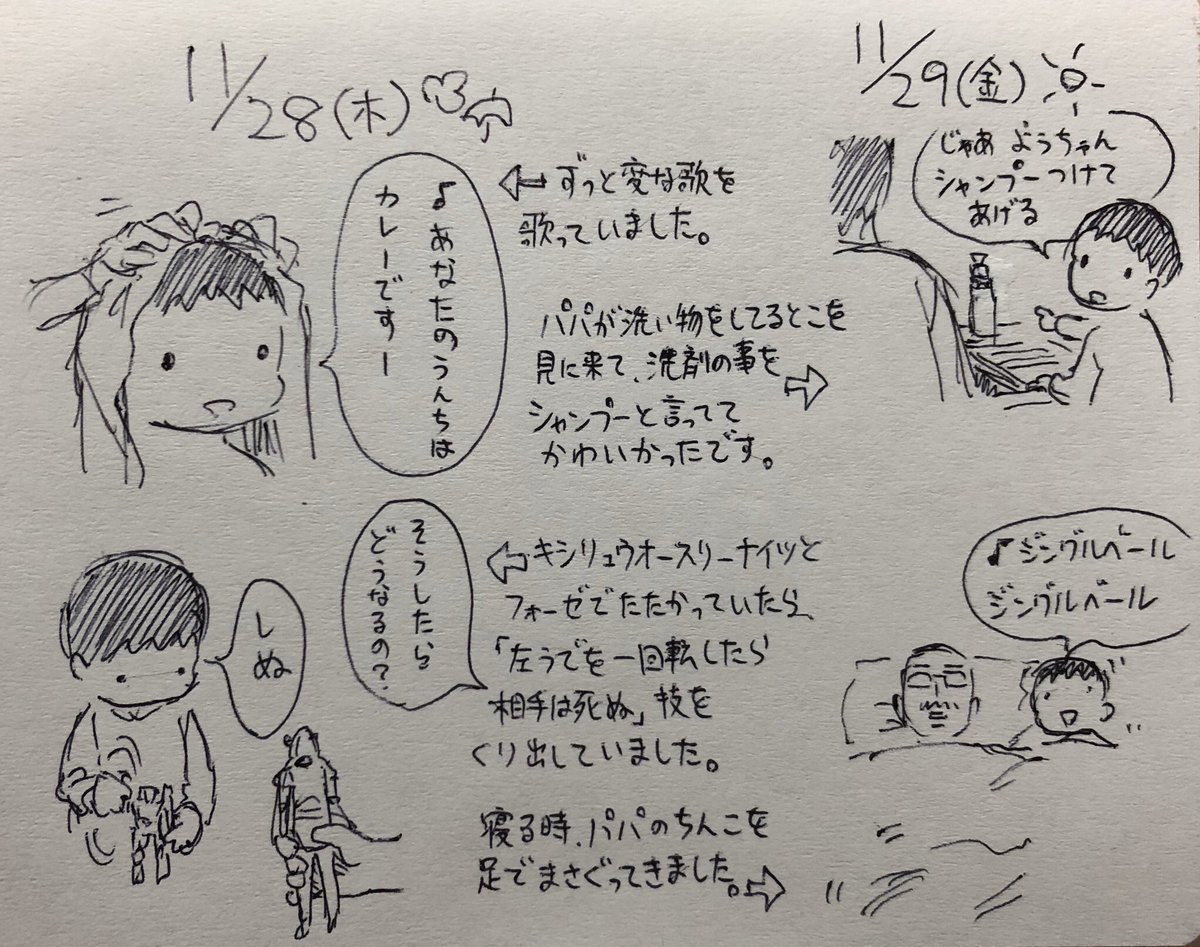 11/28(木)
♪あなたのうんちは
カレーですー
⇦ ずっと変な歌を
歌っていました。
11/29(金)
じゃあ ようちゃん
シャンプーつけて
あげる
パパが洗い物をしてるとこを
見に来て、洗剤の事を
シャンプーと言ってて ⇨
かわいかったです。
しぬ
そうしたら
どうなるの?
⇦ キシリュウオースリーナイツと
フォーゼでたたかっていたら、
「左うでを一回転したら
相手は死ぬ」技を
くり出していました。
♪ジングルベール
ジングルベール
寝る時、パパのちんこを
足でまさぐってきました。⇨